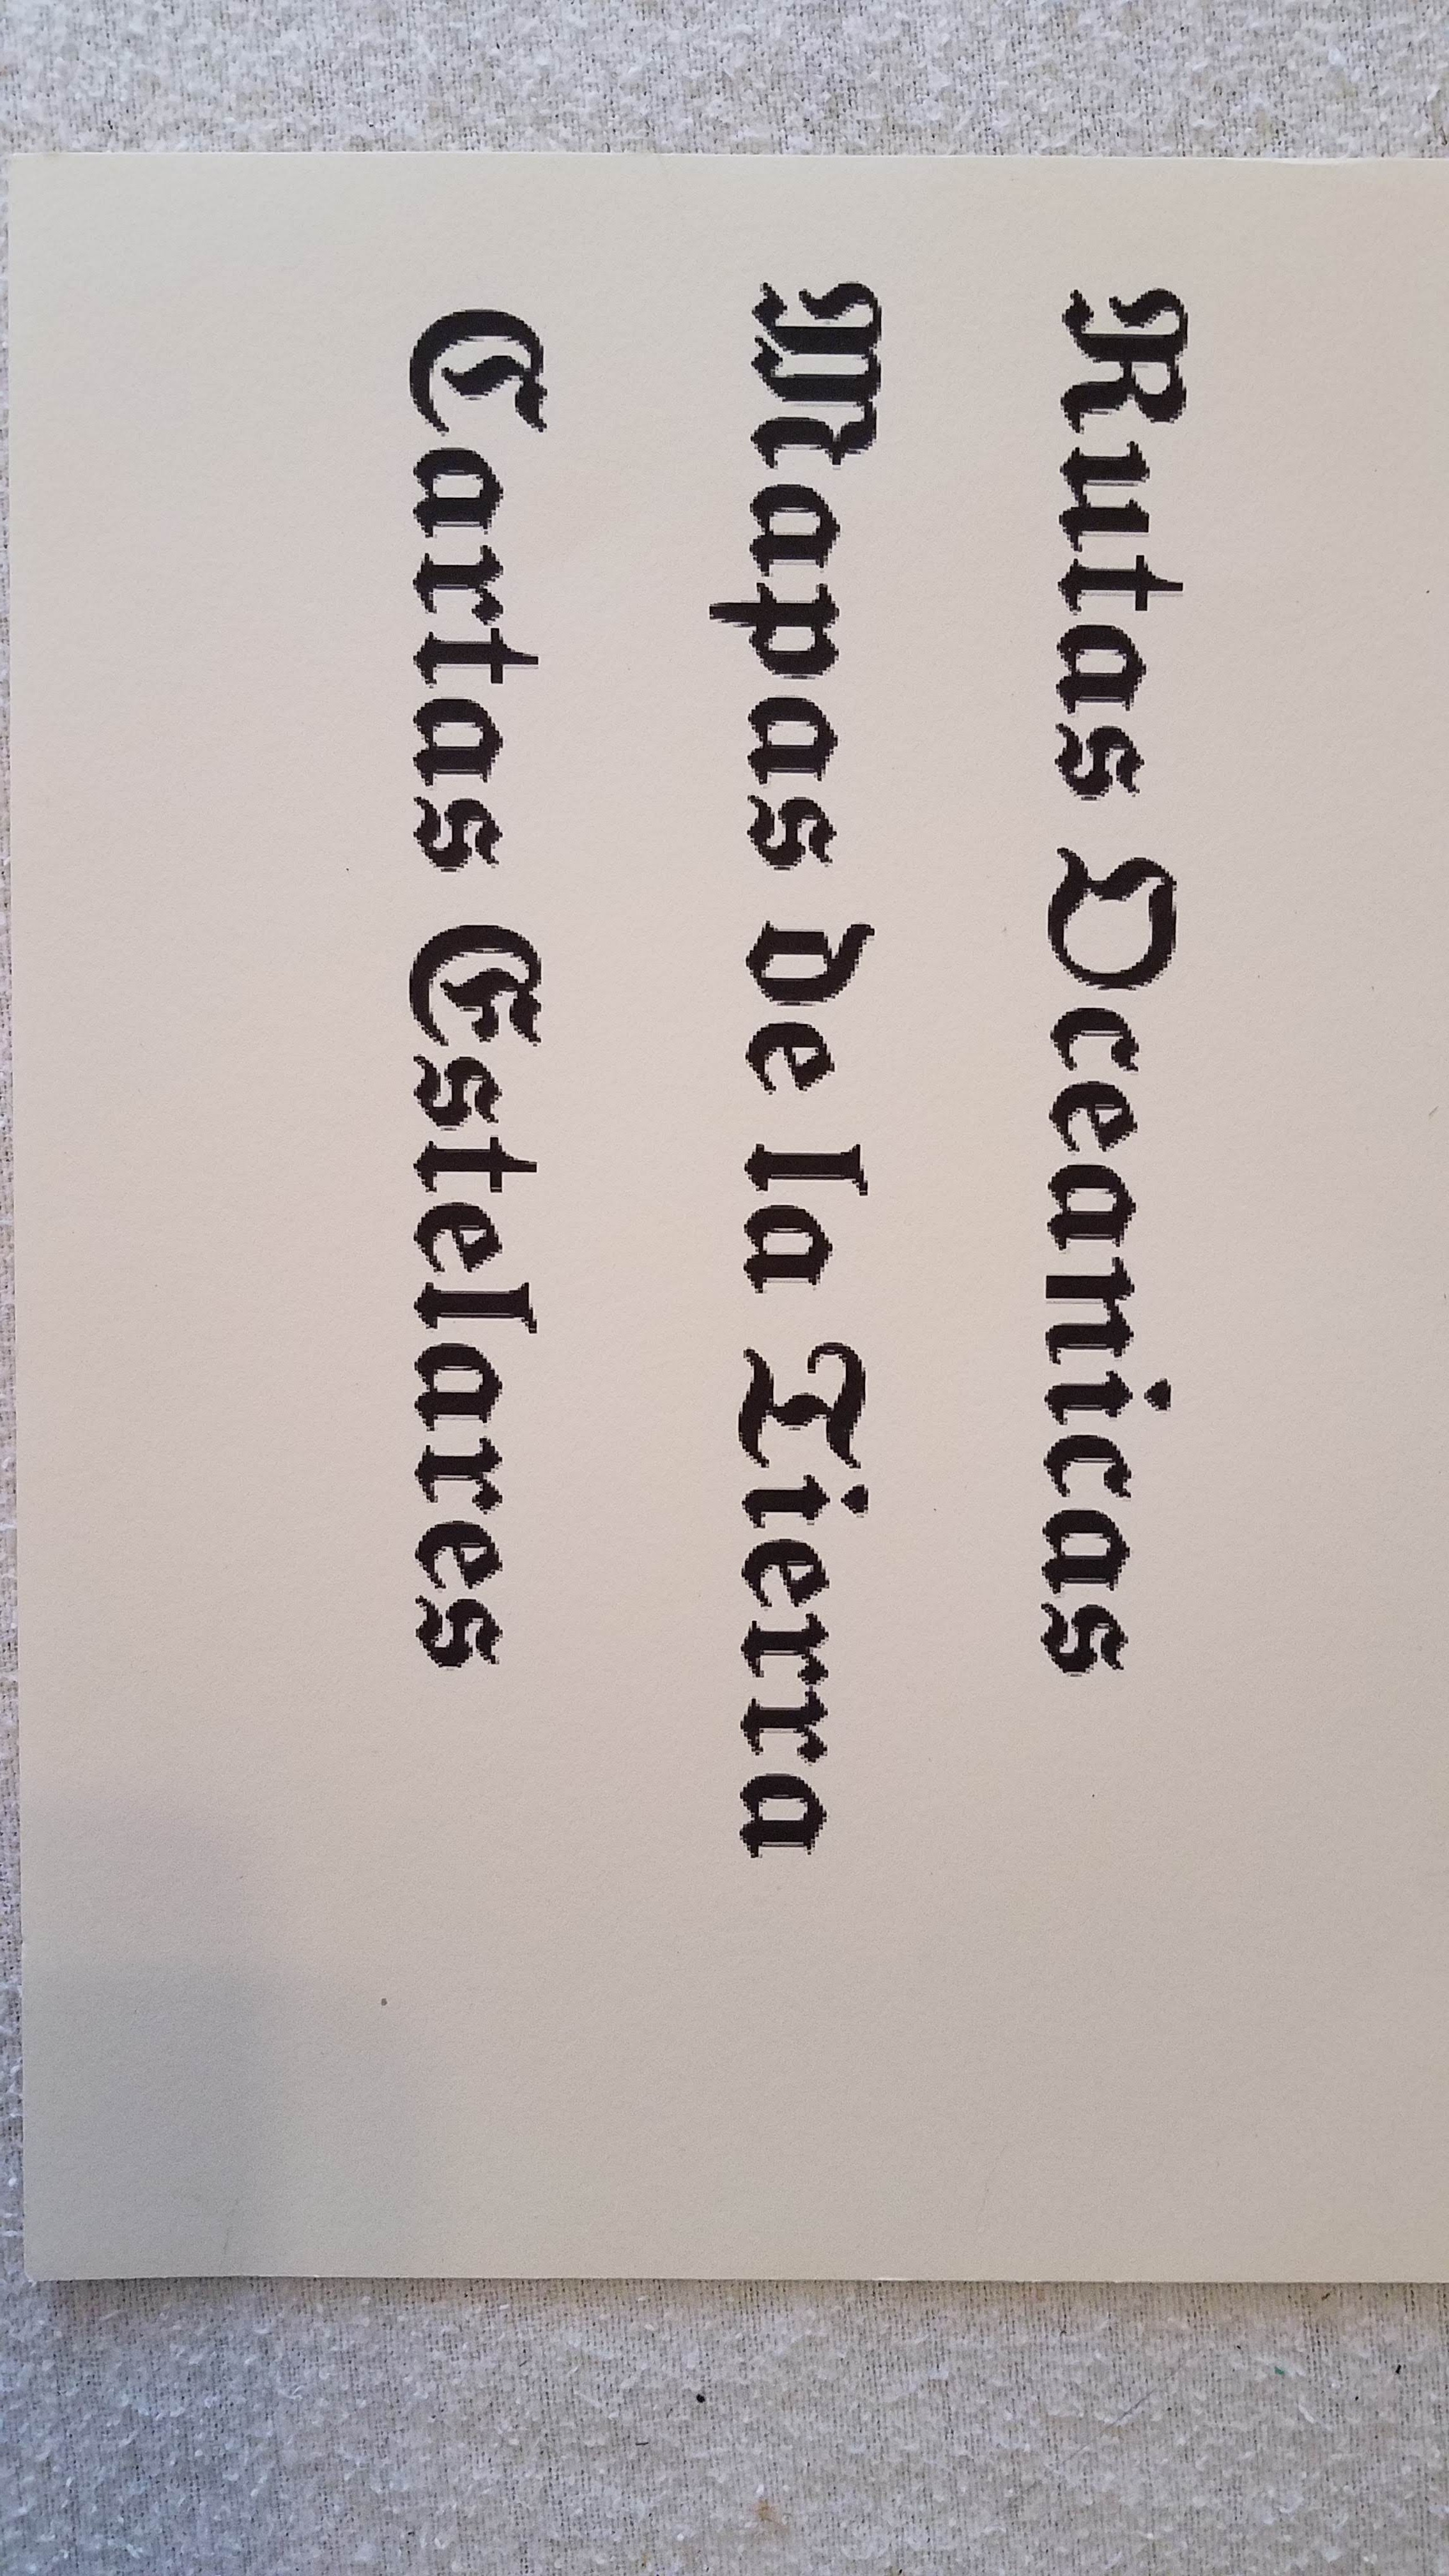 Rutas Oceanicas
Mapas de la Tierra
Cartas Estelares